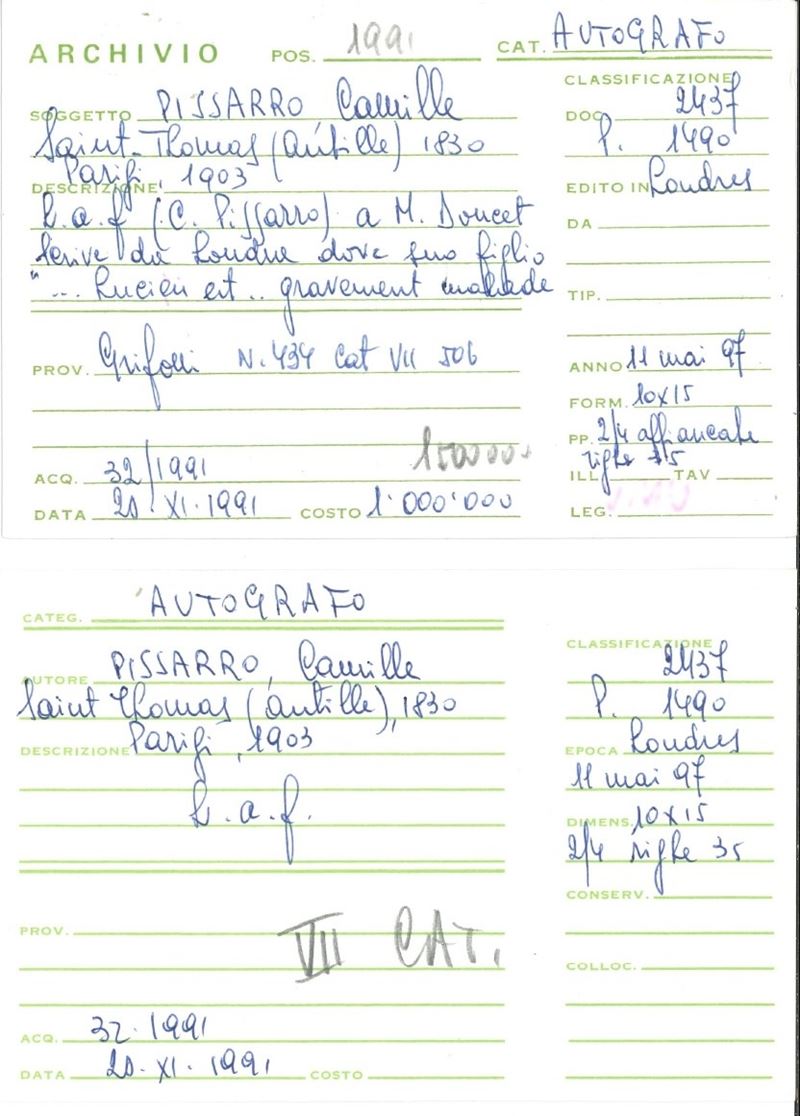 ARCHIVIO POS. 1991 CAT. AUTOGRAFO
CLASSIFICAZIONE
SOGGETTO PISSARRO Camille DOC 2437
Saint-Thomas (Antille) 1830 P. 1490
Parigi, 1903
DESCRIZIONE EDITO IN Londres
L.a.f. (C. Pissarro) a M. Doucet
DA
scrive da Londra dove suo figlio
"... Lucien est .. gravement malade
TIP.
PROV. Grifoni N. 434 Cat VII 506
ANNO 11 mai 97
FORM. 10x15
PP. 2/4 affrancate
righe 35
ILL TAV
1500000
ACQ. 32/1991
DATA 20.XI.1991 COSTO 1'000'000
LEG.
CATEG. AUTOGRAFO
CLASSIFICAZIONE
AUTORE PISSARRO, Camille 2437
Saint Thomas (Antille), 1830 P. 1490
DESCRIZIONE Parigi, 1903 EPOCA Londres
11 mai 97
L.a.f. DIMENS. 10x15
2/4 righe 35
CONSERV.
PROV. VII CAT.
COLLOC.
ACQ. 32.1991
DATA 20.XI.1991 COSTO